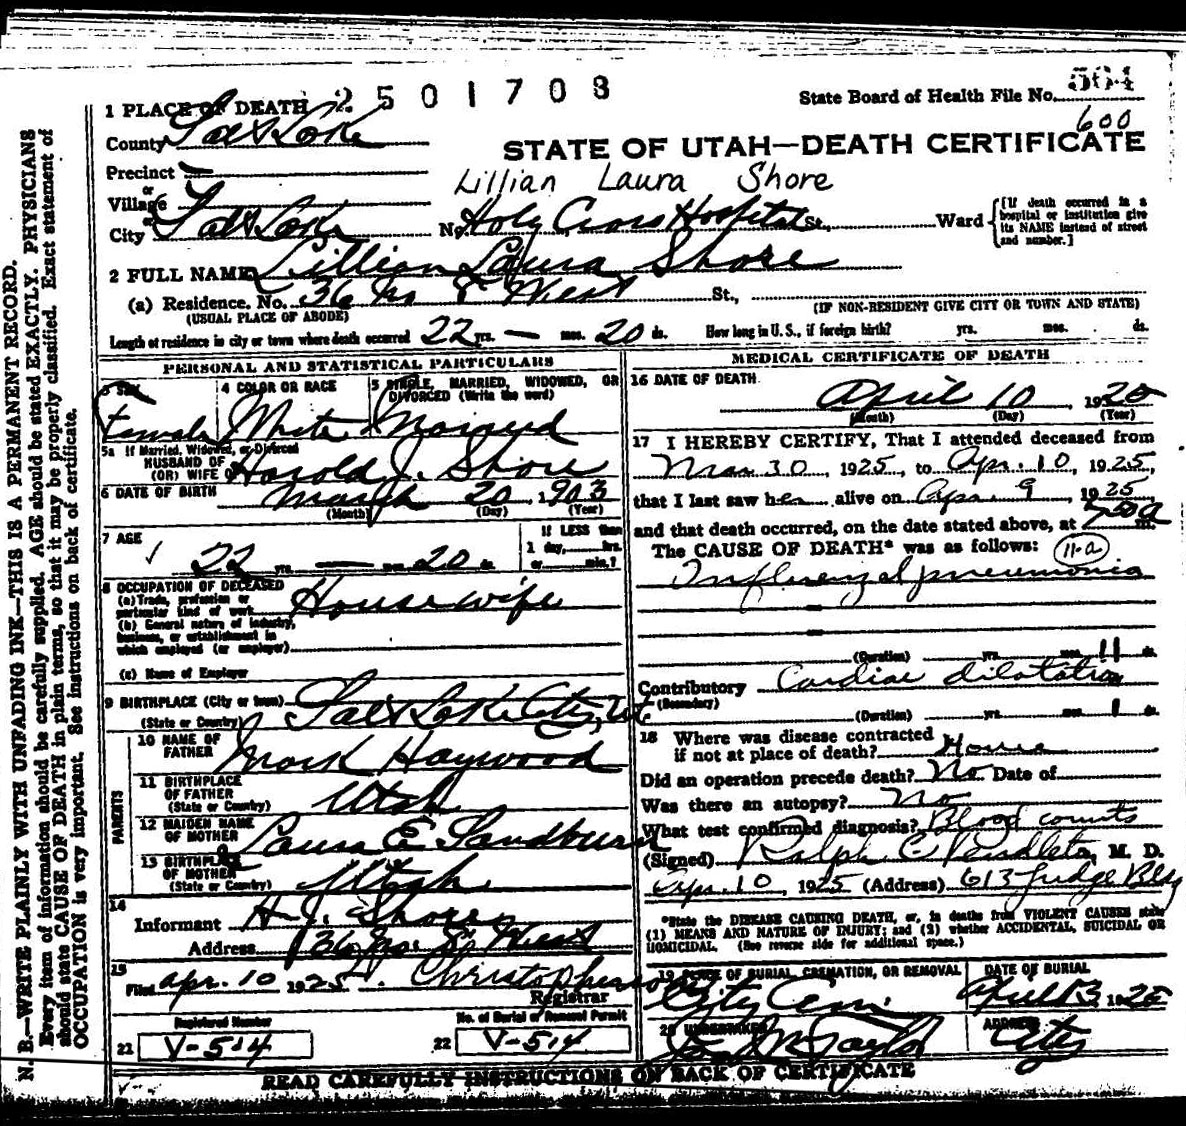 2501708
State Board of Health File No. 564
600
1 PLACE OF DEATH
County Salt Lake
STATE OF UTAH—DEATH CERTIFICATE
Precinct
Lillian Laura Shore
or
Village
or
City Salt Lake No. Holy Cross Hospital St., Ward
[If death occurred in a hospital or institution give its NAME instead of street and number.]
2 FULL NAME Lillian Laura Shore
(a) Residence. No. 36 No 8 West St.,
(USUAL PLACE OF ABODE) (IF NON-RESIDENT GIVE CITY OR TOWN AND STATE)
Length of residence in city or town where death occurred 22 yrs. — mos. 20 ds. How long in U. S., if foreign birth? yrs. mos. ds.
PERSONAL AND STATISTICAL PARTICULARS
3 SEX 4 COLOR OR RACE 5 SINGLE, MARRIED, WIDOWED, OR DIVORCED (Write the word)
Female White Married
5a If Married, Widowed, or Divorced
HUSBAND OF
(OR) WIFE Harold J. Shore
6 DATE OF BIRTH March 20, 1903
(Month) (Day) (Year)
7 AGE If LESS than
1 day, hrs.
22 yrs. — mos. 20 ds. or min.?
8 OCCUPATION OF DECEASED
(a) Trade, profession or
particular kind of work Housewife
(b) General nature of industry,
business, or establishment in
which employed (or employer)
(c) Name of Employer
9 BIRTHPLACE (City or town)
(State or Country) Salt Lake City, Ut
PARENTS
10 NAME OF
FATHER Mark Haywood
11 BIRTHPLACE
OF FATHER
(State or Country) Utah
12 MAIDEN NAME
OF MOTHER Laura E Sandburn
13 BIRTHPLACE
OF MOTHER
(State or Country) Utah
14
Informant H. J. Shore
Address 36 No. 8 West
15
Filed Apr. 10 1925 Christopherson
Registrar
Registered Number No. of Burial or Removal Permit
21 V-514 22 V-514
MEDICAL CERTIFICATE OF DEATH
16 DATE OF DEATH
April 10, 1925
(Month) (Day) (Year)
17 I HEREBY CERTIFY, That I attended deceased from
Mar 30, 1925, to Apr. 10, 1925,
that I last saw her alive on Apr. 9 1925
and that death occurred, on the date stated above, at 7 50 a m.
The CAUSE OF DEATH* was as follows: 11-a
Influenzal pneumonia
(Duration) yrs. mos. 11 ds.
Contributory Cardiac dilatation
(Secondary)
(Duration) yrs. mos. 1 ds.
18 Where was disease contracted
if not at place of death? Home
Did an operation precede death? No Date of
Was there an autopsy? No
What test confirmed diagnosis? Blood counts
(Signed) Ralph C Pendleton, M. D.
Apr. 10, 1925 (Address) 613 Judge Bldg
*State the DISEASE CAUSING DEATH, or, in deaths from VIOLENT CAUSES state
(1) MEANS AND NATURE OF INJURY; and (2) whether ACCIDENTAL, SUICIDAL OR
HOMICIDAL. (See reverse side for additional space.)
19 PLACE OF BURIAL, CREMATION, OR REMOVAL DATE OF BURIAL
City Cem. April 13, 1925
20 UNDERTAKER ADDRESS
Taylor City
READ CAREFULLY INSTRUCTIONS ON BACK OF CERTIFICATE
N. B.—WRITE PLAINLY WITH UNFADING INK—THIS IS A PERMANENT RECORD.
Every item of information should be carefully supplied. AGE should be stated EXACTLY. PHYSICIANS
should state CAUSE OF DEATH in plain terms, so that it may be properly classified. Exact statement of
OCCUPATION is very important. See instructions on back of certificate.